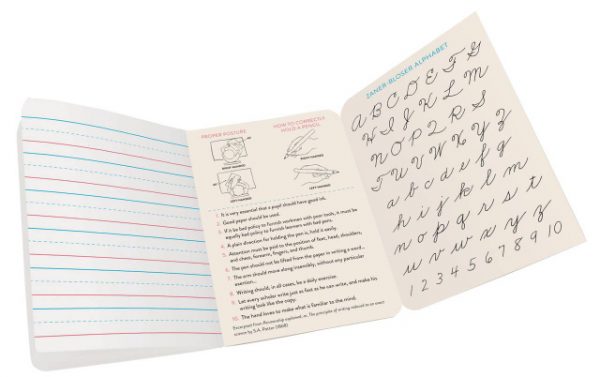 PROPER POSTURE
HOW TO CORRECTLY
HOLD A PENCIL
RIGHT HANDED
RIGHT HANDED
LEFT HANDED
LEFT HANDED
1. It is very essential that a pupil should have good ink.
2. Good paper should be used.
3. If it be bad policy to furnish workmen with poor tools, it must be
equally bad policy to furnish learners with bad pens.
4. A plain direction for holding the pen is, hold it easily.
5. Attention must be paid to the position of feet, head, shoulders,
and chest, forearm, fingers, and thumb.
6. The pen should not be lifted from the paper in writing a word...
7. The arm should move along insensibly, without any particular
exertion...
8. Writing should, in all cases, be a daily exercise.
9. Let every scholar write just as fast as he can write, and make his
writing look like the copy.
10. The hand loves to make what is familiar to the mind.
Excerpted from Penmanship explained, or, The principles of writing reduced to an exact
science by S.A. Potter (1868)
ZANER-BLOSER ALPHABET
A B C D E F G
H I J K L M
N O P Q R S
T U V W X Y Z
a b c d e f g
h i j k l m
n o p q r s t
u v w x y z
1 2 3 4 5 6 7 8 9 10